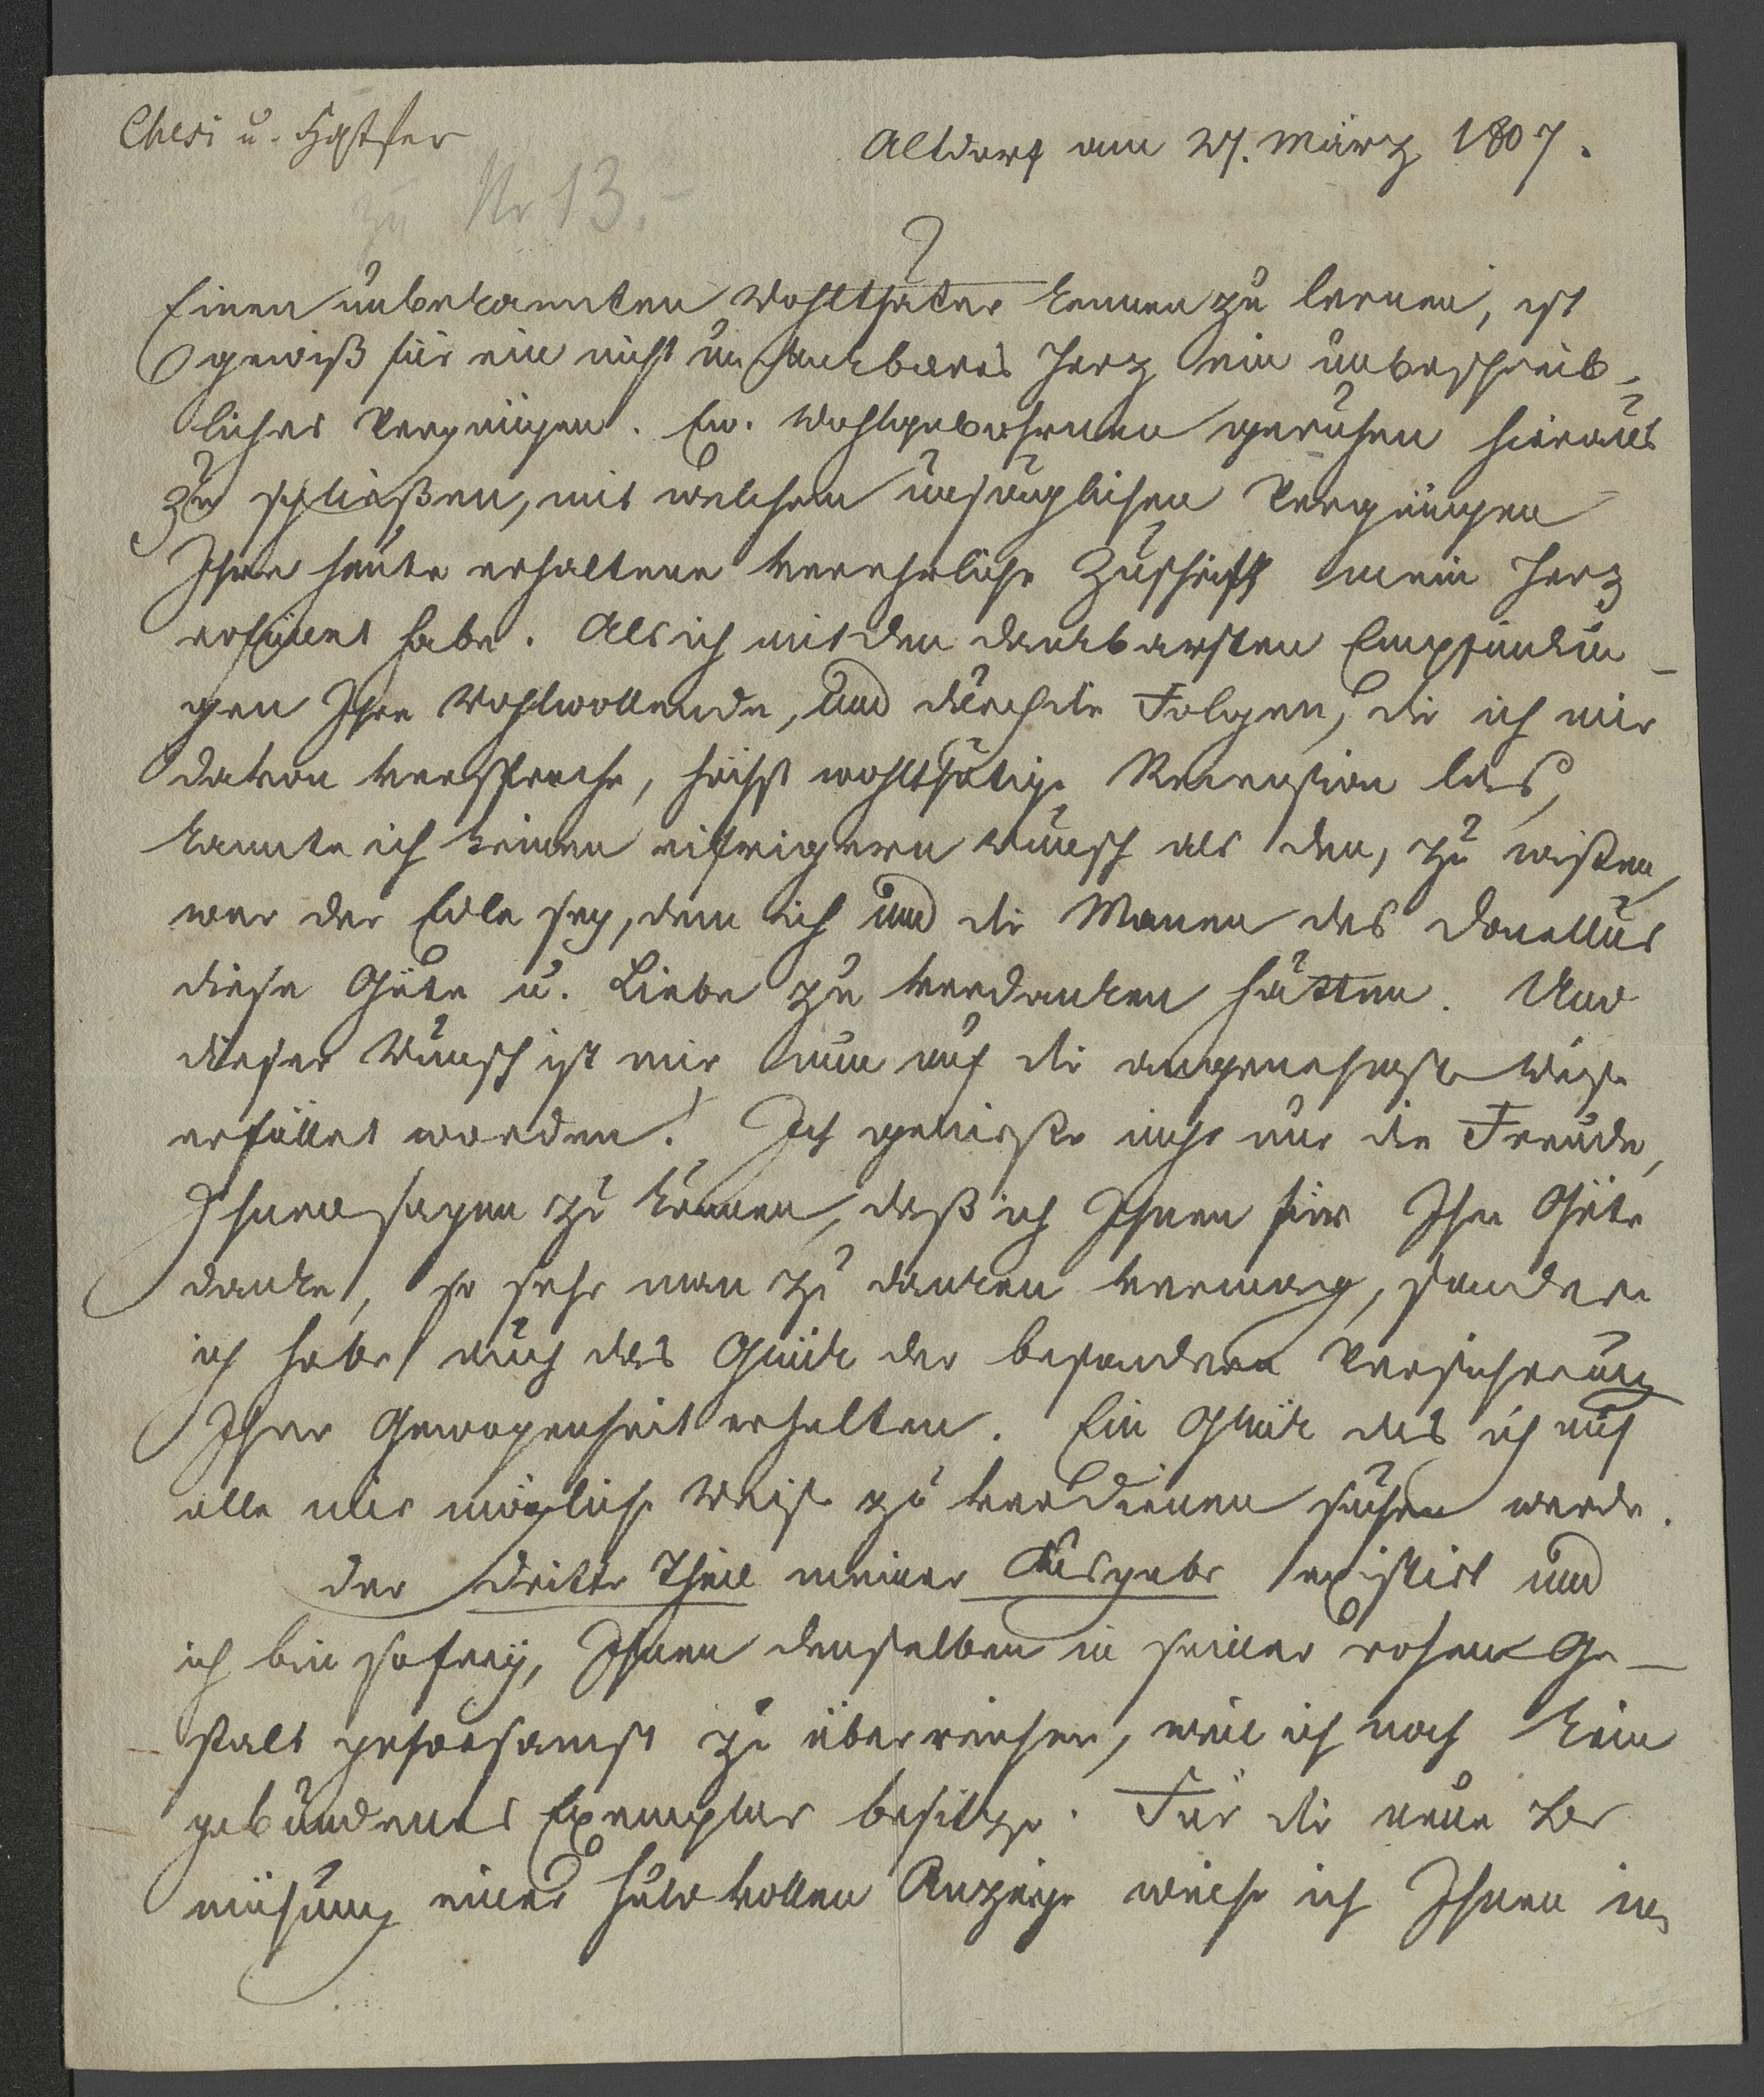 Altdorf am 27. März 1807.
zu Nr 13.
Einen unbekannten Wohlthäter kennen zu lernen, ist
gewiß für ein nicht undankbares Herz ein unbeschreib-
liches Vergnügen. Ew. Wohlgebohrnen geruhen hieraus
zu schließen, mit welchem unsäglichen Vergnügen
Ihre heute erhaltene verehrliche Zuschrift mein Herz
erfüllet habe. Als ich mit den dankbarsten Empfindun-
gen Ihre wohlwollende, und durch die Folgen, die ich mir
davon verspreche, höchst wohlthätige Recension las,
kannte ich keinen eifrigern Wunsch als den, zu wißen
wer der Edle sey, dem ich und die Manen des Donellus
diese Güte u. Liebe zu verdanken hätten. Und
dieser Wunsch ist mir nun auf die angenehmste Weise
erfüllet worden! Ich genieße nicht nur die Freude,
Ihnen sagen zu können, daß ich Ihnen für Ihre Güte
danke, so sehr man zu danken vermag, sondern
ich habe auch das Glück der besondern Versicherung
Ihrer Gewogenheit erhalten. Ein Glück das ich auf
alle mir mögliche Weise zu verdienen suchen werde.
Der dritte Theil meiner Ausgabe existirt und
ich bin so frey, Ihnen denselben in seiner rohen Ge-
stalt gehorsamst zu überreichen, weil ich noch kein
gebundenes Exemplar besitze. Für die neue Be
mühung einer huldvollen Anzeige werde ich Ihnen im